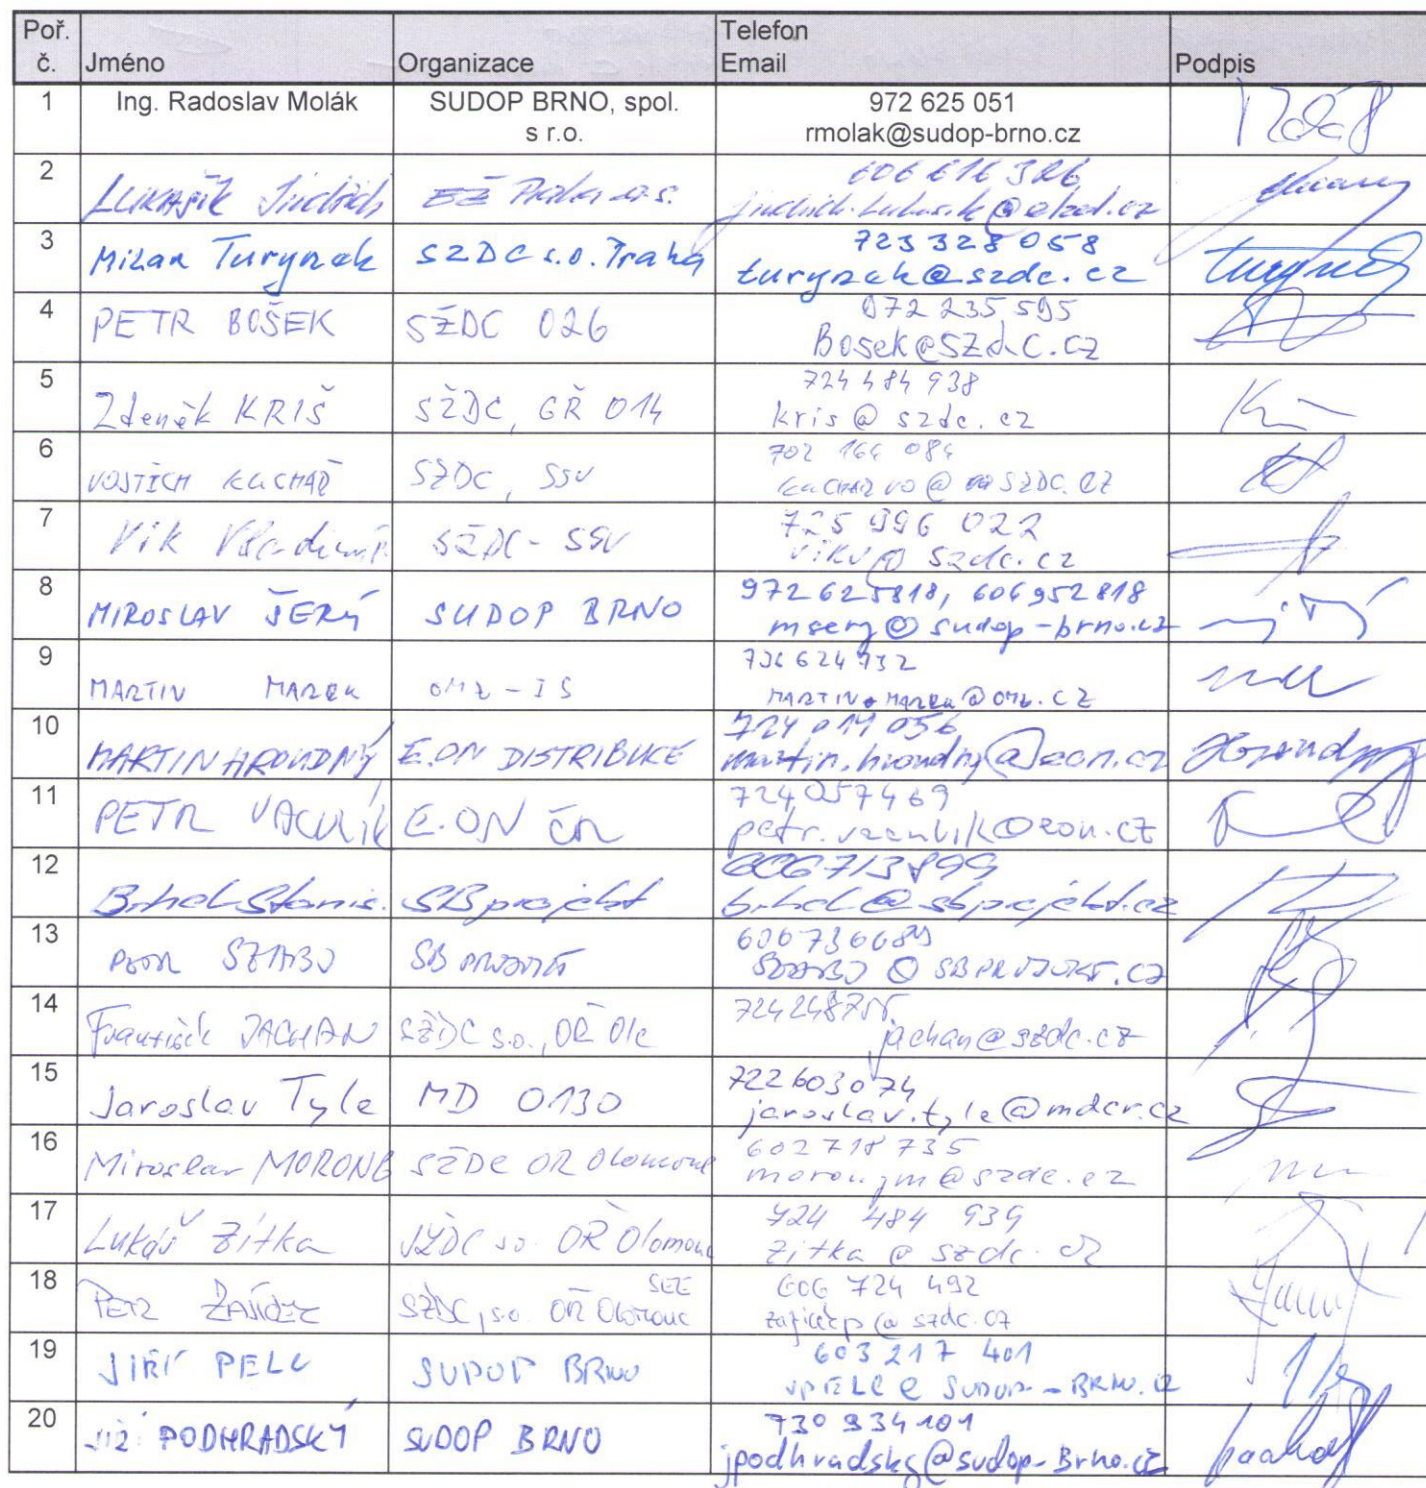 Poř. č. Jméno Organizace Telefon Email Podpis
1 Ing. Radoslav Molák SUDOP BRNO, spol. s r.o. 972 625 051
rmolak@sudop-brno.cz
2 606 616 326
Praha a.s.
3 Milan Turynek SZDC s.o. Praha 723 328 058
turynek@szdc.cz
4 PETR BOŠEK SŽDC 026 972 235 595
Bosek@SZdC.cz
5 Zdeněk KRIŠ SŽDC, GŘ O14 724 484 938
kris@szdc.cz
6 VOJTĚCH KUCHAŘ SŽDC, SSV
7 Vik Vladimír SŽDC - SSV 725 996 022
vikv@szdc.cz
8 MIROSLAV ŠERÝ SUDOP BRNO 972625818, 606952818
msery@sudop-brno.cz
9 MARTIN MAREK 736 624 932
10 MARTIN HROUDNÝ E.ON DISTRIBUCE 724 011 056
martin.hroudny@eon.cz
11 PETR VACULÍK E.ON ČR 724057469
petr.vaculik@eon.cz
12 Brhel Stanis. SB projekt 606713899
brhel@sbprojekt.cz
13 SZABO 606736689
14 František JACHAN SŽDC s.o., OŘ Olc
jachan@szdc.cz
15 Jaroslav Tyle MD O130 722603074
jaroslav.tyle@mdcr.cz
16 Miroslav MORONG SŽDC OŘ Olomouc 602 718 735
morongm@szdc.cz
17 Lukáš Zítka SŽDC s.o. OŘ Olomouc 724 484 939
zitka@szdc.cz
18 PETR ZAJÍČEK SŽDC, s.o. OŘ Olomouc SEE 606 724 492
zajicekp@szdc.cz
19 JIŘÍ PELC SUDOP BRNO 603 217 401
20 JIŘÍ PODHRADSKÝ SUDOP BRNO 730 934 101
jpodhradsky@sudop-Brno.cz